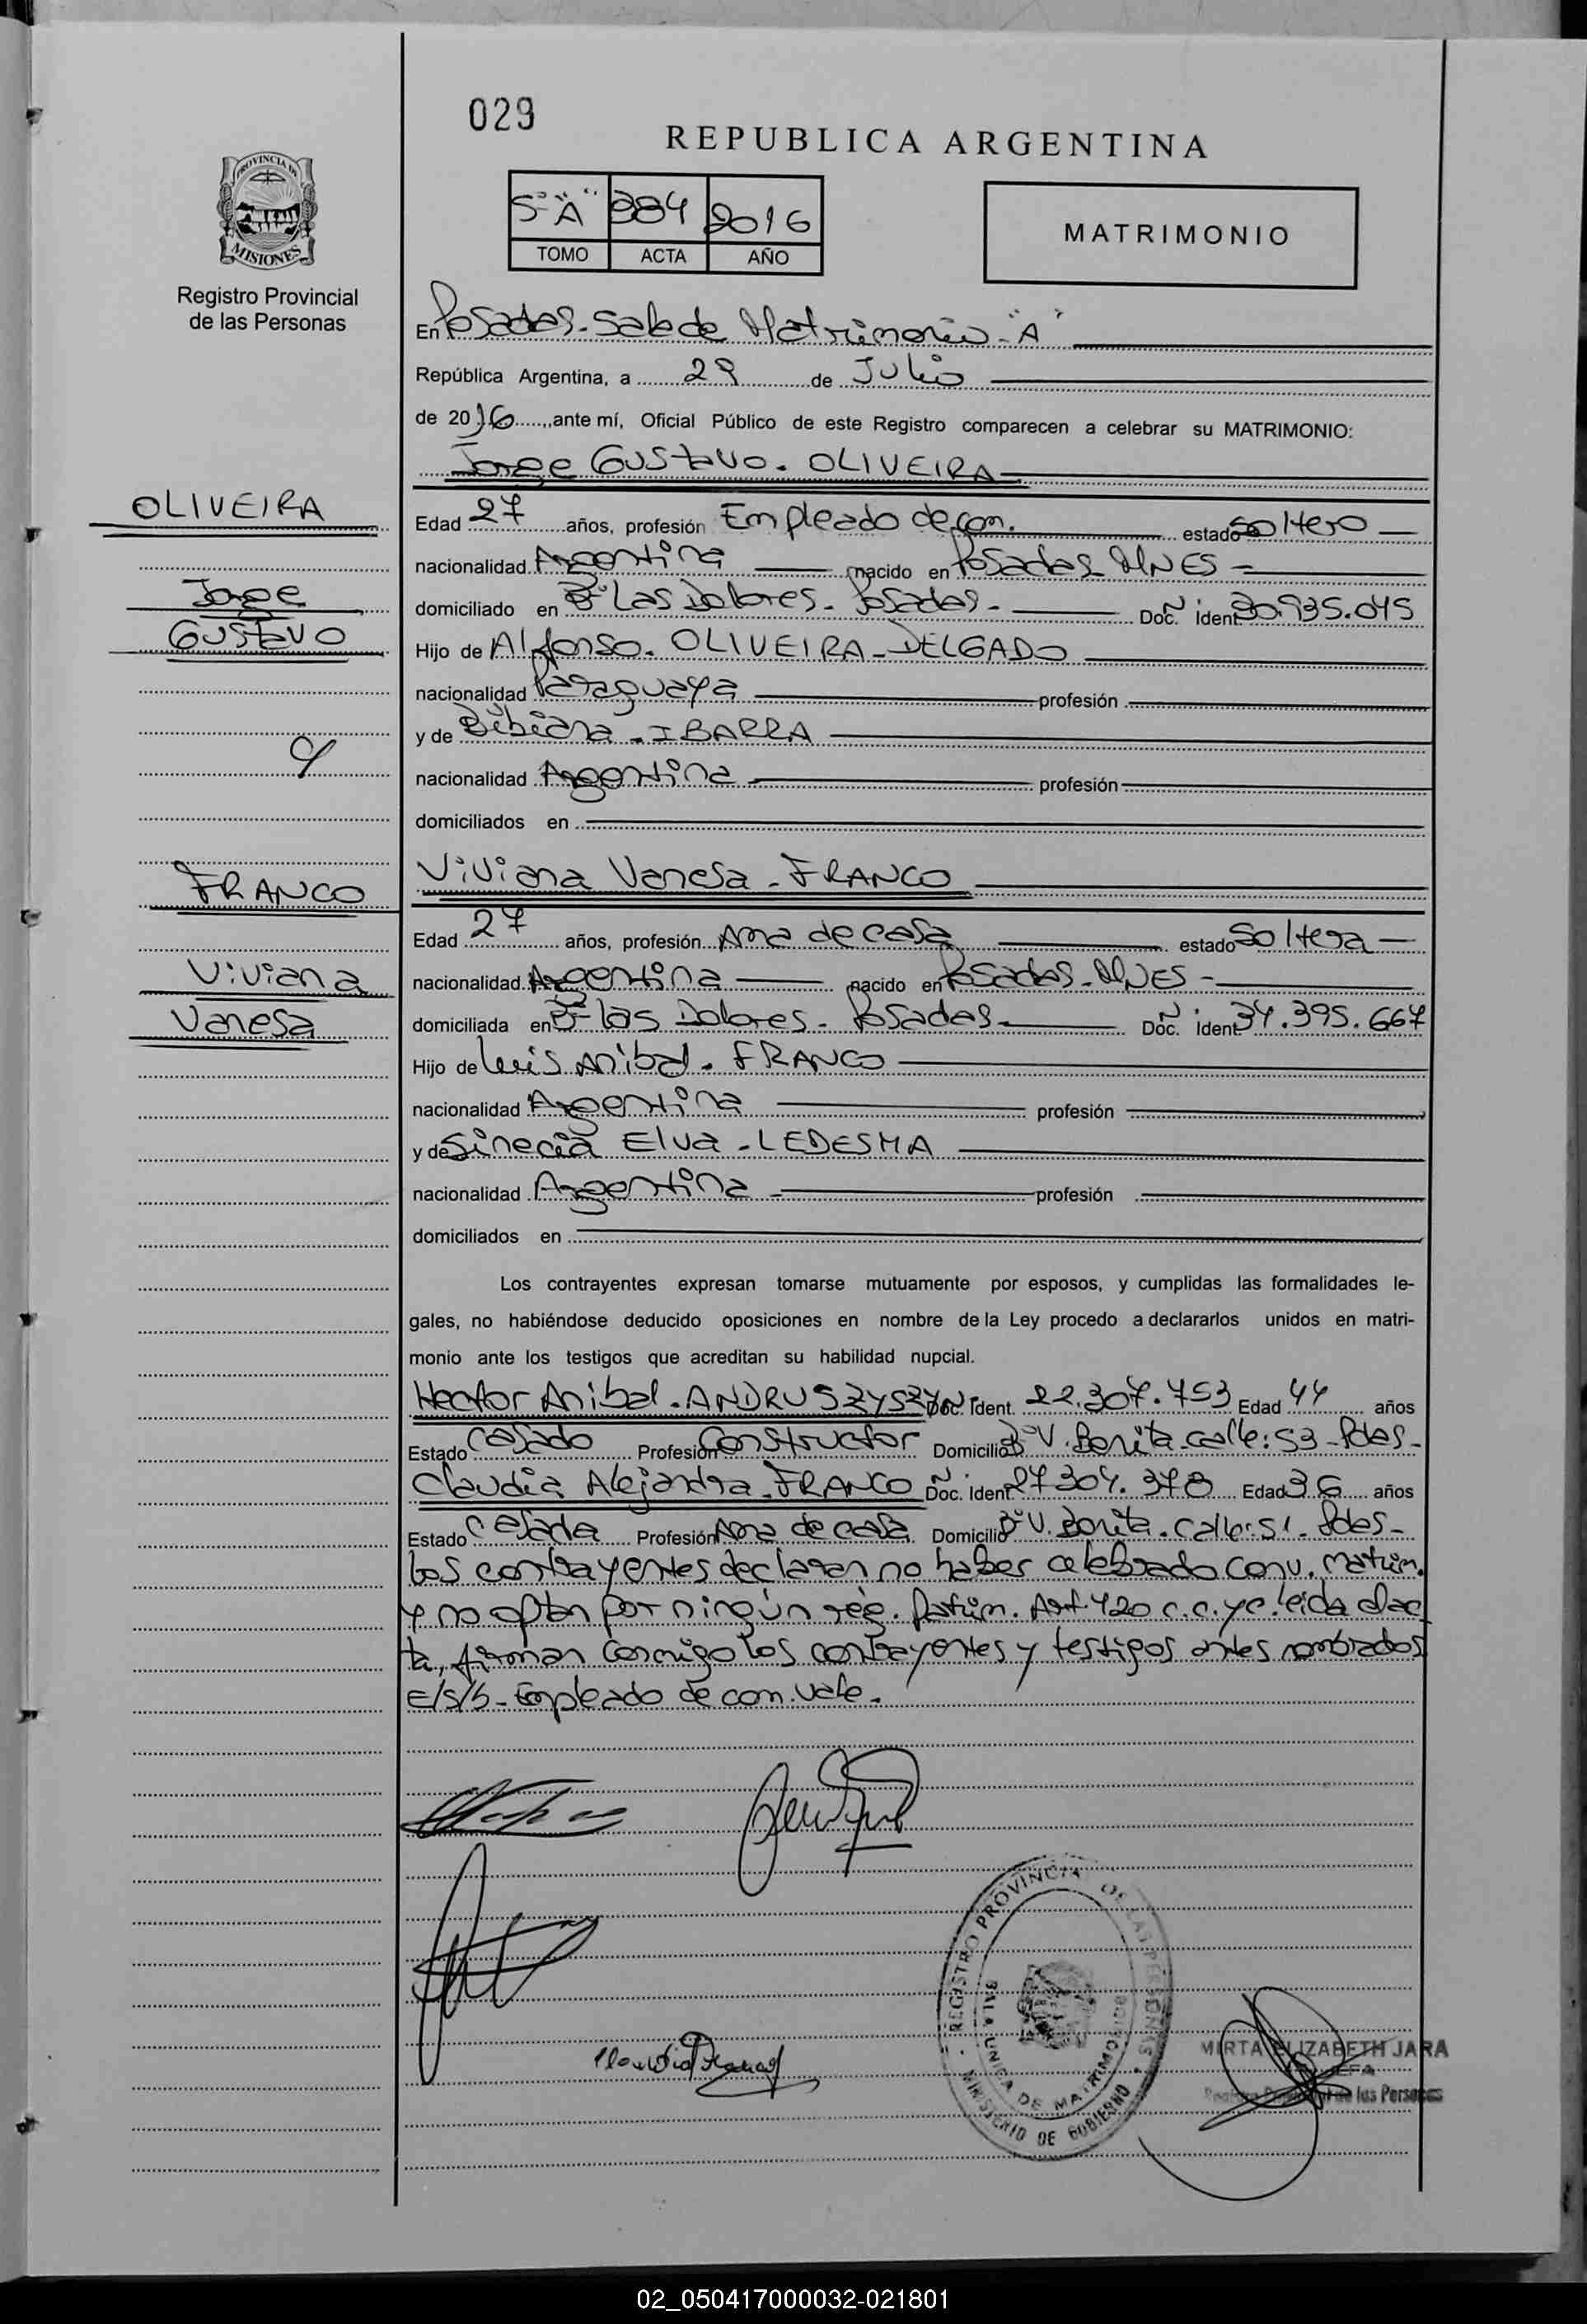 029
REPUBLICA ARGENTINA
5º "A" 284 2016
TOMO ACTA AÑO
MATRIMONIO
PROVINCIA DE
MISIONES
Registro Provincial
de las Personas
En Posadas - Sala de Matrimonio - "A"
República Argentina, a 29 de Julio
de 2016, ante mí, Oficial Público de este Registro comparecen a celebrar su MATRIMONIO:
Jorge Gustavo. OLIVEIRA
OLIVEIRA
Jorge
Gustavo
y
FRANCO
Viviana
Vanesa
Edad 27 años, profesión Empleado de com. estado soltero
nacionalidad Argentina nacido en Posadas - MNES -
domiciliado en Bº Las Dolores - Posadas - Doc. Ident. 30.935.045
Hijo de Alfonso. OLIVEIRA - DELGADO
nacionalidad Paraguaya profesión
y de Bibiana - IBARRA
nacionalidad Argentina profesión
domiciliados en
Viviana Vanesa - FRANCO
Edad 27 años, profesión Ama de casa estado soltera
nacionalidad Argentina nacido en Posadas - MNES -
domiciliada en Bº las Dolores - Posadas - Doc. Ident. 34.395.667
Hijo de Luis Anibal. FRANCO
nacionalidad Argentina profesión
y de Sinecia Elva - LEDESMA
nacionalidad Argentina profesión
domiciliados en
Los contrayentes expresan tomarse mutuamente por esposos, y cumplidas las formalidades le-
gales, no habiéndose deducido oposiciones en nombre de la Ley procedo a declararlos unidos en matri-
monio ante los testigos que acreditan su habilidad nupcial.
Hector Anibal - ANDRUSZYSZYN Doc. Ident. 22.307.753 Edad 44 años
Estado casado Profesión Constructor Domicilio Bº V. Bonita - calle: 53 - Pdas -
Claudia Alejandra - FRANCO Doc. Ident. 27.304.378 Edad 36 años
Estado casada Profesión Ama de casa Domicilio Bº V. Bonita - calle: 51 - Pdas -
Los contrayentes declaran no haber celebrado conv. matrim.
y no optan por ningún rég. Patrim. Art. 420 c.c. y c. leida el ac
ta, firman conmigo los contrayentes y testigos antes nombrados
E/S/b - Empleado de com. vale.
Claudia Franco
REGISTRO PROVINCIAL DE LAS PERSONAS
SALA UNICA DE MATRIMONIOS
MINISTERIO DE GOBIERNO
MIRTA ELIZABETH JARA
JEFA
Registro Provincial de las Personas
02_050417000032-021801